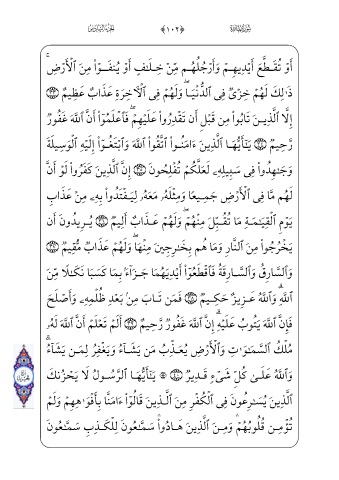 سورة المائدة ﴿١٠٢﴾ الجزء السادس
أَوْ تُقَطَّعَ أَيْدِيهِمْ وَأَرْجُلُهُم مِّنْ خِلَـٰفٍ أَوْ يُنفَوْا۟ مِنَ ٱلْأَرْضِ ۚ
ذَٰلِكَ لَهُمْ خِزْىٌ فِى ٱلدُّنْيَا ۖ وَلَهُمْ فِى ٱلْـَٔاخِرَةِ عَذَابٌ عَظِيمٌ
إِلَّا ٱلَّذِينَ تَابُوا۟ مِن قَبْلِ أَن تَقْدِرُوا۟ عَلَيْهِمْ ۖ فَٱعْلَمُوٓا۟ أَنَّ ٱللَّهَ غَفُورٌ
رَّحِيمٌ يَـٰٓأَيُّهَا ٱلَّذِينَ ءَامَنُوا۟ ٱتَّقُوا۟ ٱللَّهَ وَٱبْتَغُوٓا۟ إِلَيْهِ ٱلْوَسِيلَةَ
وَجَـٰهِدُوا۟ فِى سَبِيلِهِۦ لَعَلَّكُمْ تُفْلِحُونَ إِنَّ ٱلَّذِينَ كَفَرُوا۟ لَوْ أَنَّ
لَهُم مَّا فِى ٱلْأَرْضِ جَمِيعًا وَمِثْلَهُۥ مَعَهُۥ لِيَفْتَدُوا۟ بِهِۦ مِنْ عَذَابِ
يَوْمِ ٱلْقِيَـٰمَةِ مَا تُقُبِّلَ مِنْهُمْ ۖ وَلَهُمْ عَذَابٌ أَلِيمٌ يُرِيدُونَ أَن
يَخْرُجُوا۟ مِنَ ٱلنَّارِ وَمَا هُم بِخَـٰرِجِينَ مِنْهَا ۖ وَلَهُمْ عَذَابٌ مُّقِيمٌ
وَٱلسَّارِقُ وَٱلسَّارِقَةُ فَٱقْطَعُوٓا۟ أَيْدِيَهُمَا جَزَآءًۢ بِمَا كَسَبَا نَكَـٰلًا مِّنَ
ٱللَّهِ ۗ وَٱللَّهُ عَزِيزٌ حَكِيمٌ فَمَن تَابَ مِنۢ بَعْدِ ظُلْمِهِۦ وَأَصْلَحَ
فَإِنَّ ٱللَّهَ يَتُوبُ عَلَيْهِ ۗ إِنَّ ٱللَّهَ غَفُورٌ رَّحِيمٌ أَلَمْ تَعْلَمْ أَنَّ ٱللَّهَ لَهُۥ
مُلْكُ ٱلسَّمَـٰوَٰتِ وَٱلْأَرْضِ يُعَذِّبُ مَن يَشَآءُ وَيَغْفِرُ لِمَن يَشَآءُ ۗ
وَٱللَّهُ عَلَىٰ كُلِّ شَىْءٍ قَدِيرٌ ۞ يَـٰٓأَيُّهَا ٱلرَّسُولُ لَا يَحْزُنكَ
ٱلَّذِينَ يُسَـٰرِعُونَ فِى ٱلْكُفْرِ مِنَ ٱلَّذِينَ قَالُوٓا۟ ءَامَنَّا بِأَفْوَٰهِهِمْ وَلَمْ
تُؤْمِن قُلُوبُهُمْ ۛ وَمِنَ ٱلَّذِينَ هَادُوا۟ ۛ سَمَّـٰعُونَ لِلْكَذِبِ سَمَّـٰعُونَ